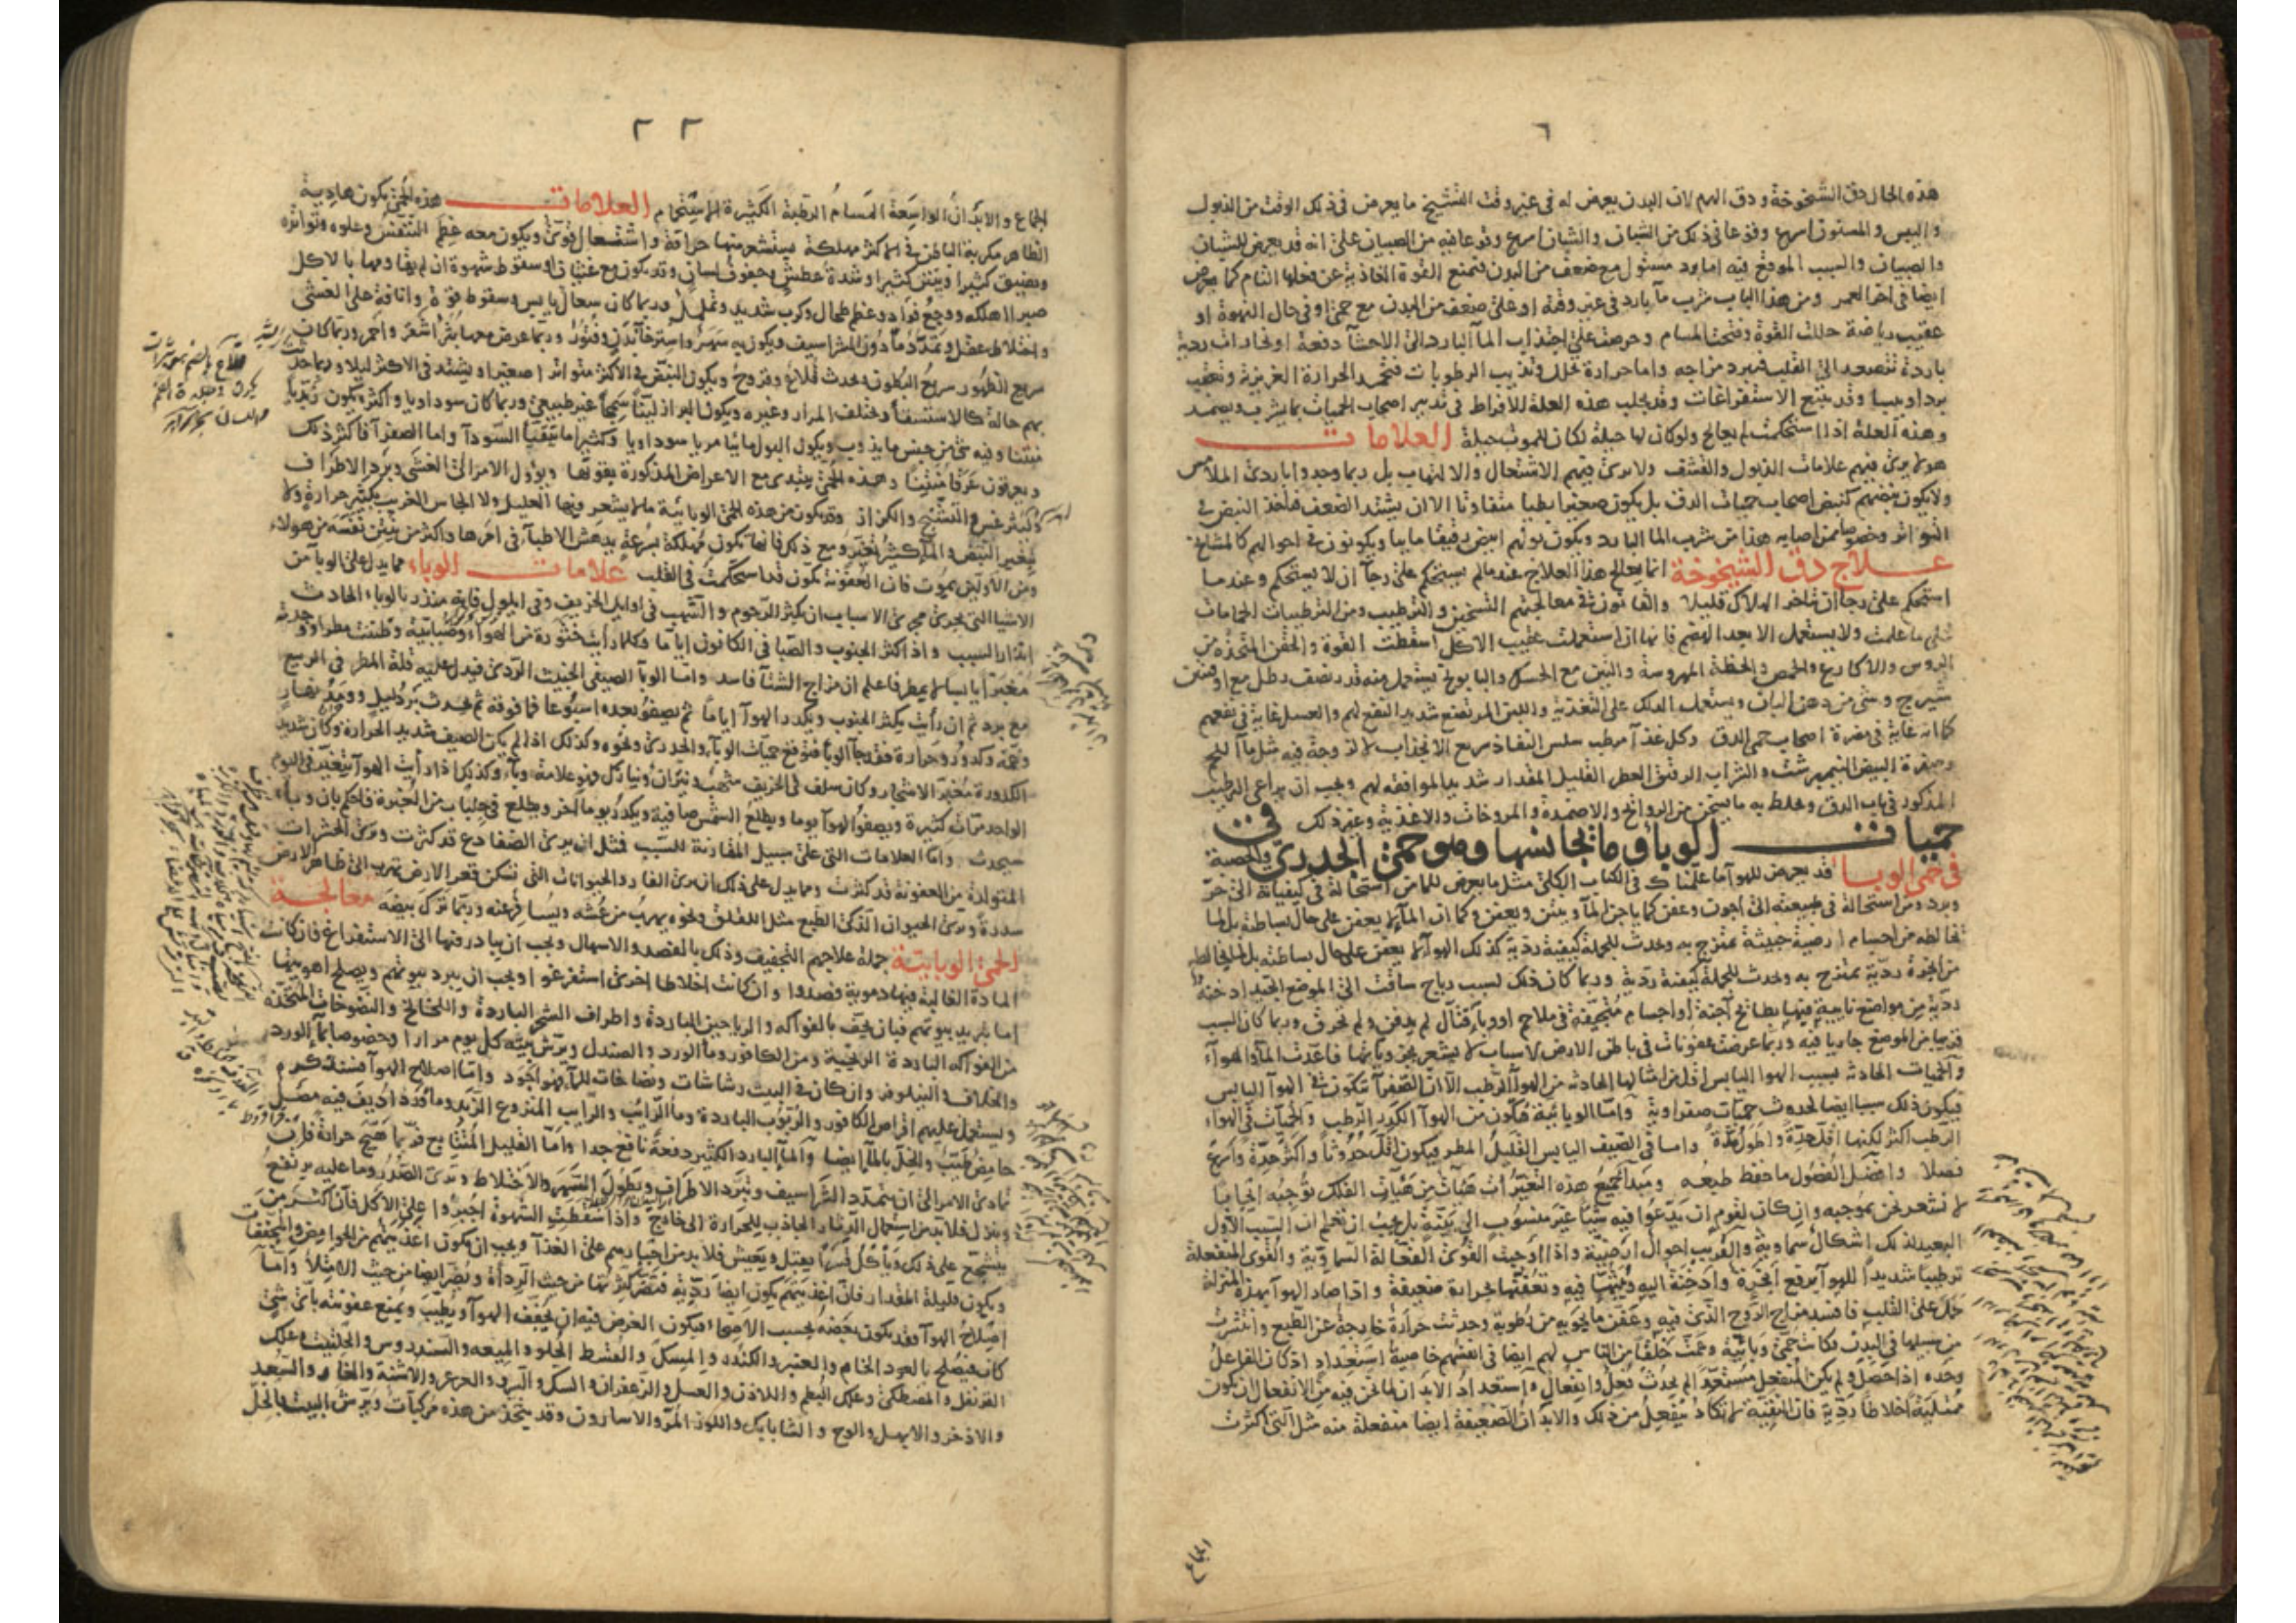 ٦
هذه الحال دق الشيخوخة ودق الهرم لان البدن يعرض له في غير وقت الشيخ ما يعرض في ذلك الوقت من الذبول
واليبس والمسنون اسرع وقوعا في ذلك من الشبان والشبان اسرع وقوعا فيه من الصبيان على انه قد يعرض للشبان
والصبيان والسبب الموقع فيه اما برد مستول مع ضعف من البدن فتمنع القوة الغاذية عن فعلها التام كما يعرض
ايضا في اخر العمر ومن هذا الباب شرب مآ بارد في غير وقته او على ضعف من البدن مع حمى او في حال النهوة او
عقيب رياضة حللت القوة وفتحت المسام وحرصت على اجتذاب المآ البارد الى الاحشآ دفعة او بخارات ردية
باردة تتصعد الى القلب فيبرد مزاجه واما حرارة تحلل وتذيب الرطوبات فتخمد الحرارة الغريزية وتعقب
بردا ويبسا وقد يتبع الاستفراغات وقد يجلب هذه العلة للافراط في تدبير اصحاب الحميات بما يشرب ويضمد
وهذه العلة اذا استحكمت لم يعالج ولو كان لها حيلة لكان للموت حيلة العلامات
هولا يرى فيهم علامات الذبول والقشف ولا يرى فيهم الاشتعال والالتهاب بل ربما وجدوا باردى الملامس
ولا يكون نبضهم كنبض اصحاب حميات الدق بل يكون صغيرا بطيا متفاوتا الا ان يشتد الضعف فياخذ النبض في
التواتر وخصوصا ممن اصابه هذا من شرب المآ البارد ويكون بولهم ابيض رقيقا ماييا ويكونون في احوالهم كالمشايخ
علاج دق الشيخوخة انما يعالج هذا العلاج عندما لم يستحكم على رجآ ان لا يستحكم وعندما
استحكم على رجآ ان تتاخر الهلاك قليلا والقانون في معالجتهم التسخين والترطيب ومن الترطيبات الحمامات
على ما علمت ولا يستعمل الا بعد الهضم فانها ان استعملت عقيب الاكل اسقطت القوة والحقن المتخذة من
الروس والاكارع والحمص والحنطة المهروسة والتين مع الحسك والبابونج يستعمل منه قدر نصف رطل مع اوقيتين
شيرج وشي من دهن البان ويستعمل الدلك على التغذية واللبن المرتضع شديد النفع لهم والعسل غاية في نفعهم
كما انه غاية في مضرة اصحاب حمى الدق وكل غذآ مرطب سلس النفاذ سريع الانجذاب لا لزوجة فيه مثل مآ اللحم
وصفرة البيض النيمبرشت والشراب الرقيق العطر القليل المقدار شديد الموافقة لهم ويجب ان يراعى الترطيب
المذكور في باب الدق ويخلط به ما يسخن من الروائح والاضمدة والمروخات والاغذية وغير ذلك في
حميات الوبآ وما يجانسها وهو حمى الجدرى والحصبة
في حمى الوبا قد يعرض للهوآ ما علمناك في الكتاب الكلى مثل ما يعرض للمآ من استحالة في كيفياته الى حر
وبرد ومن استحالة في طبيعته الى اجون وعفن كما ياجن المآ وينتن ويعفن وكما ان المآ لم يعفن على حال بساطته بل لما
يخالطه من اجسام ارضية خبيثة تمتزج به وتحدث للجملة كيفية ردية كذلك الهوآ لم يعفن على حال بساطته بل لما يخالطه
من ابخرة ردية تمتزج به وتحدث للجملة كيفية ردية وربما كان ذلك لسبب رياح ساقت الى الموضع الجيد ادخنة
ردية من مواضع نايية فيها بطائح آجنة او اجسام متجيفة في ملاحم او وبآ قتال لم يدفن ولم تحرق وربما كان السبب
قريبا من الموضع جاريا فيه وربما عرضت عفونات في باطن الارض لاسباب لا يشعر بجزوياتها فاعدت المآ والهوآء
والحميات الحادثة بسبب الهوا اليابس اقل من امثالها الحادثة من الهوآ الرطب الا ان الصفرآ تتكون في الهوآ اليابس
فيكون ذلك سببا ايضا لحدوث حميات صفراوية وامّا الوبائية فتكون من الهوآ الكدر الرطب والحميات في الهواء
الرطب اكثر لكنها اقل حدة واطول مدة واما في الصيف اليابس القليل المطر فيكون اقل حدوثا واكثر حدة واسرع
فصلا وافضل الفصول ما حفظ طبيعه ومبدآ جميع هذه التغيرات هيات من هيات الفلك توجبه ايجابا
لا نشعر نحن بموجبه وان كان لقوم ان يدعوا فيه شيا غير منسوب الى بينة بل يجب ان نعلم ان السبب الاول
البعيد لذلك اشكال سماوية والقريب احوال ارضية واذا اوجبت القوى الفعالة السماوية والقوى المنفعلة
ترطيبا شديدا للهوآ يرفع ابخرة وادخنة اليه ويبثها فيه وتعفنها بحرارة ضعيفة واذا صار الهوآ بهذه المنزلة
حمل على القلب فافسد مزاج الروح الذى فيه وعفن ما يحويه من رطوبة وحدثت حرارة خارجة عن الطبع وانتشرت
من سبيلها في البدن فكانت حمى وبائية وعمت خلقا من الناس لهم ايضا في انفسهم خاصية استعداد اذ كان الفاعل
وحده اذا حصل ولم يكن المنفعل مستعدا لم يحدث فعل وانفعال واستعداد الابدان لما نحن فيه من الانفعال ان يكون
ممتلية اخلاطا ردية فان النقية لا تكاد تنفعل من ذلك والابدان الضعيفة ايضا منفعلة منه مثل التى اكثرت
الجماع
٢٢
الجماع والابدان الواسعة المسام الرطبة الكثيرة الاستحمام العلامات هذه الحمى يكون هادية
الظاهر مكربة الباطن في الاكثر مهلكة يستشعر منها حرافة واشتعال قوى ويكون معه عظم التنفس وعلوه وتواتره
ويضيق كثيرا وينتن كثيرا وشدة عطش وجفوف لسان وقد يكون مع غثيان او سقوط شهوة ان لم يقاومها بالاكل
صبرا اهلكه ووجع فواد وعظم طحال وكرب شديد وتململ وربما كان سعال يابس وسقوط قوة وانافة على الغشى
واختلاط عقل وتمدد مآ دون الشراسيف ويكون به سهر واسترخآ بدن وفتور وربما عرض معها بثر اشقر واحمر وربما كان
سريع الظهور سريع البطون ويحدث قلاع وقروح ويكون النبض في الاكثر متواترا صغيرا ويشتد في الاكثر ليلا وربما حدث
بهم حالة كالاستسقآ ويختلف المرار وغيره ويكون البراز لينا سمجا غير طبيعى وربما كان سوداويا واكثره يكون زبديا
منتنا وفيه شى من جنس ما يذوب ويكون البول مائيا مريا سوداويا وكثيرا ما يتقيآ السودآ واما الصفرآ فاكثر ذلك
ويعرقون عرقا منتنا وهذه الحمى يبتدى مع الاعراض المذكورة بقوتها ويوول الامر الى الغشى وبرد الاطراف
وليثرغس والتشنج والكزاز وقد يكون من هذه الحمى الوبائية ما لا يشعر فيها العليل ولا الجاس الغريب بكثير حرارة ولا
يتغير النبض والمآ كثير تغير ومع ذلك فانها تكون مهلكة بسرعة يدهش الاطبآ في امرها واكثر من ينتن نفسه من هولآء
ومن الاولين يموت فان العفونة تكون قد استحكمت في القلب علامات الوباء مما يدل على الوبآ من
الاشيا التى تجرى مجرى الاسباب ان يكثر الرجوم والشهب في اوايل الخريف وفي ايلول فانه منذر بالوباء الحادث
انذار السبب واذ اكثر الجنوب والصبا في الكانونين اياما وكلما رايت خثورة من الهوآء وضبابية وظننت مطرا ووجدته
مغبرا يابسا لا يمطر فاعلم ان مزاج الشتآ فاسد وامّا الوبآ الصيفى الخبيث الردى فيدل عليه قلة المطر في الربيع
مع برد ثم ان رأيت يكثر الجنوب ويكدر الهوآ اياما ثم يصفو بعده اسبوعا فما فوقه ثم يحدث برد ليل وومد نهار
وغمة وكدور وحرارة فقد جآ الوبآ فتوقع حميات الوبآء والجدرى ونحوه وكذلك اذا لم يكن الصيف شديد الحرارة وكان شديد
الكدورة مغبر الاشجار وكان سلف في الخريف شهب ونيران ونيازك فهو علامة وبآء وكذلك اذا رأيت الهوآ يتغير في اليوم
الواحد مرات كثيرة ويصفو الهوآ يوما ويطلع الشمس صافية ويكدر يوما اخر ويطلع في جلباب من الغبرة فاحكم بان وبآء
سيحدث وامّا العلامات التى على سبيل المقارنة للسبب فمثل ان يرى الضفادع قد كثرت وترى الحشرات
المتولدة من العفونة قد كثرت ومما يدل على ذلك ان يرى الفار والحيوانات التى تسكن قعر الارض تهرب الى ظاهر الارض
سدرة وترى الحيوان الذكى الطبع مثل اللقلق ونحوه يهرب من عشه ويسافر عنه وربما ترك بيضه معالجة
الحمى الوبايية جملة علاجهم التجفيف وذلك بالفصد والاسهال ويجب ان يبادر فيها الى الاستفراغ فان كانت
المادة الغالبة فيها دموية فصدوا وان كانت اخلاطا اخرى استفرغوا ويجب ان يبرد بيوتهم ويصلح اهويتها
امّا تبريد بيوتهم فبان يحف بالفواكه والرياحين الباردة واطراف الشجر الباردة واللخالخ والنضوخات المتخذة
من الفواكه الباردة الزكية ومن الكافور ومآ الورد والصندل ويرش بيته كل يوم مرارا وخصوصا بمآ الورد
والخلاف والنيلوفر وان كان في البيت رشاشات ونضاخات للمآ فهو اجود وامّا اصلاح الهوآ فسنذكره
ويستعمل عليهم اقراص الكافور والربوب الباردة ومآ الرايب والرايب المنزوع الزبد ومآ ورد اديف فيه مصل
حامض طيب والخل بالمآ ايضا والمآ البارد الكثير دفعة نافع جدا وامّا القليل المتتابع فربما هيج حرارة فان
تمادى الامر الى ان يتمدد الشراسيف وتبرد الاطراف ويطول السهر والاختلاط وترى الصدر وما عليه يرتفع
وينزل فلا بد من استعمال الدثار الجاذب للحرارة الى خارج واذا سقطت الشهوة اجبروا على الاكل فان اكثر من
يتشجع على ذلك وياكل قسرا يقبل ويعيش فلا بد من اجبارهم على الغذآ ويجب ان يكون اغذيتهم من الحوامض والمجففات
ويكون قليلة المقدار فان اغذيتهم يكون ايضا ردية فتضر كثرتها من حيث الردآة وتضر ايضا من حيث الامتلآ وامّا
اصلاح الهوآ فقد يكون بعضه بحسب الاصحآء فيكون الغرض فيه ان يجفف الهوآ ويطيب ويمنع عفونته باى شى
كان فيصلح بالعود الخام والعنبر والكندر والمسك والقسط الحلو والميعه والسندروس والحلتيت وعلك
القرنفل والمصطكى وعلك البطم واللاذن والعسل والزعفران والسك والسرو والعرعر والاشنة والغار والسعد
والاذخر والابهل والوج والشابابك واللوز المر والاسارون وقد يتخذ من هذه مركبات ويرش البيت بالخل